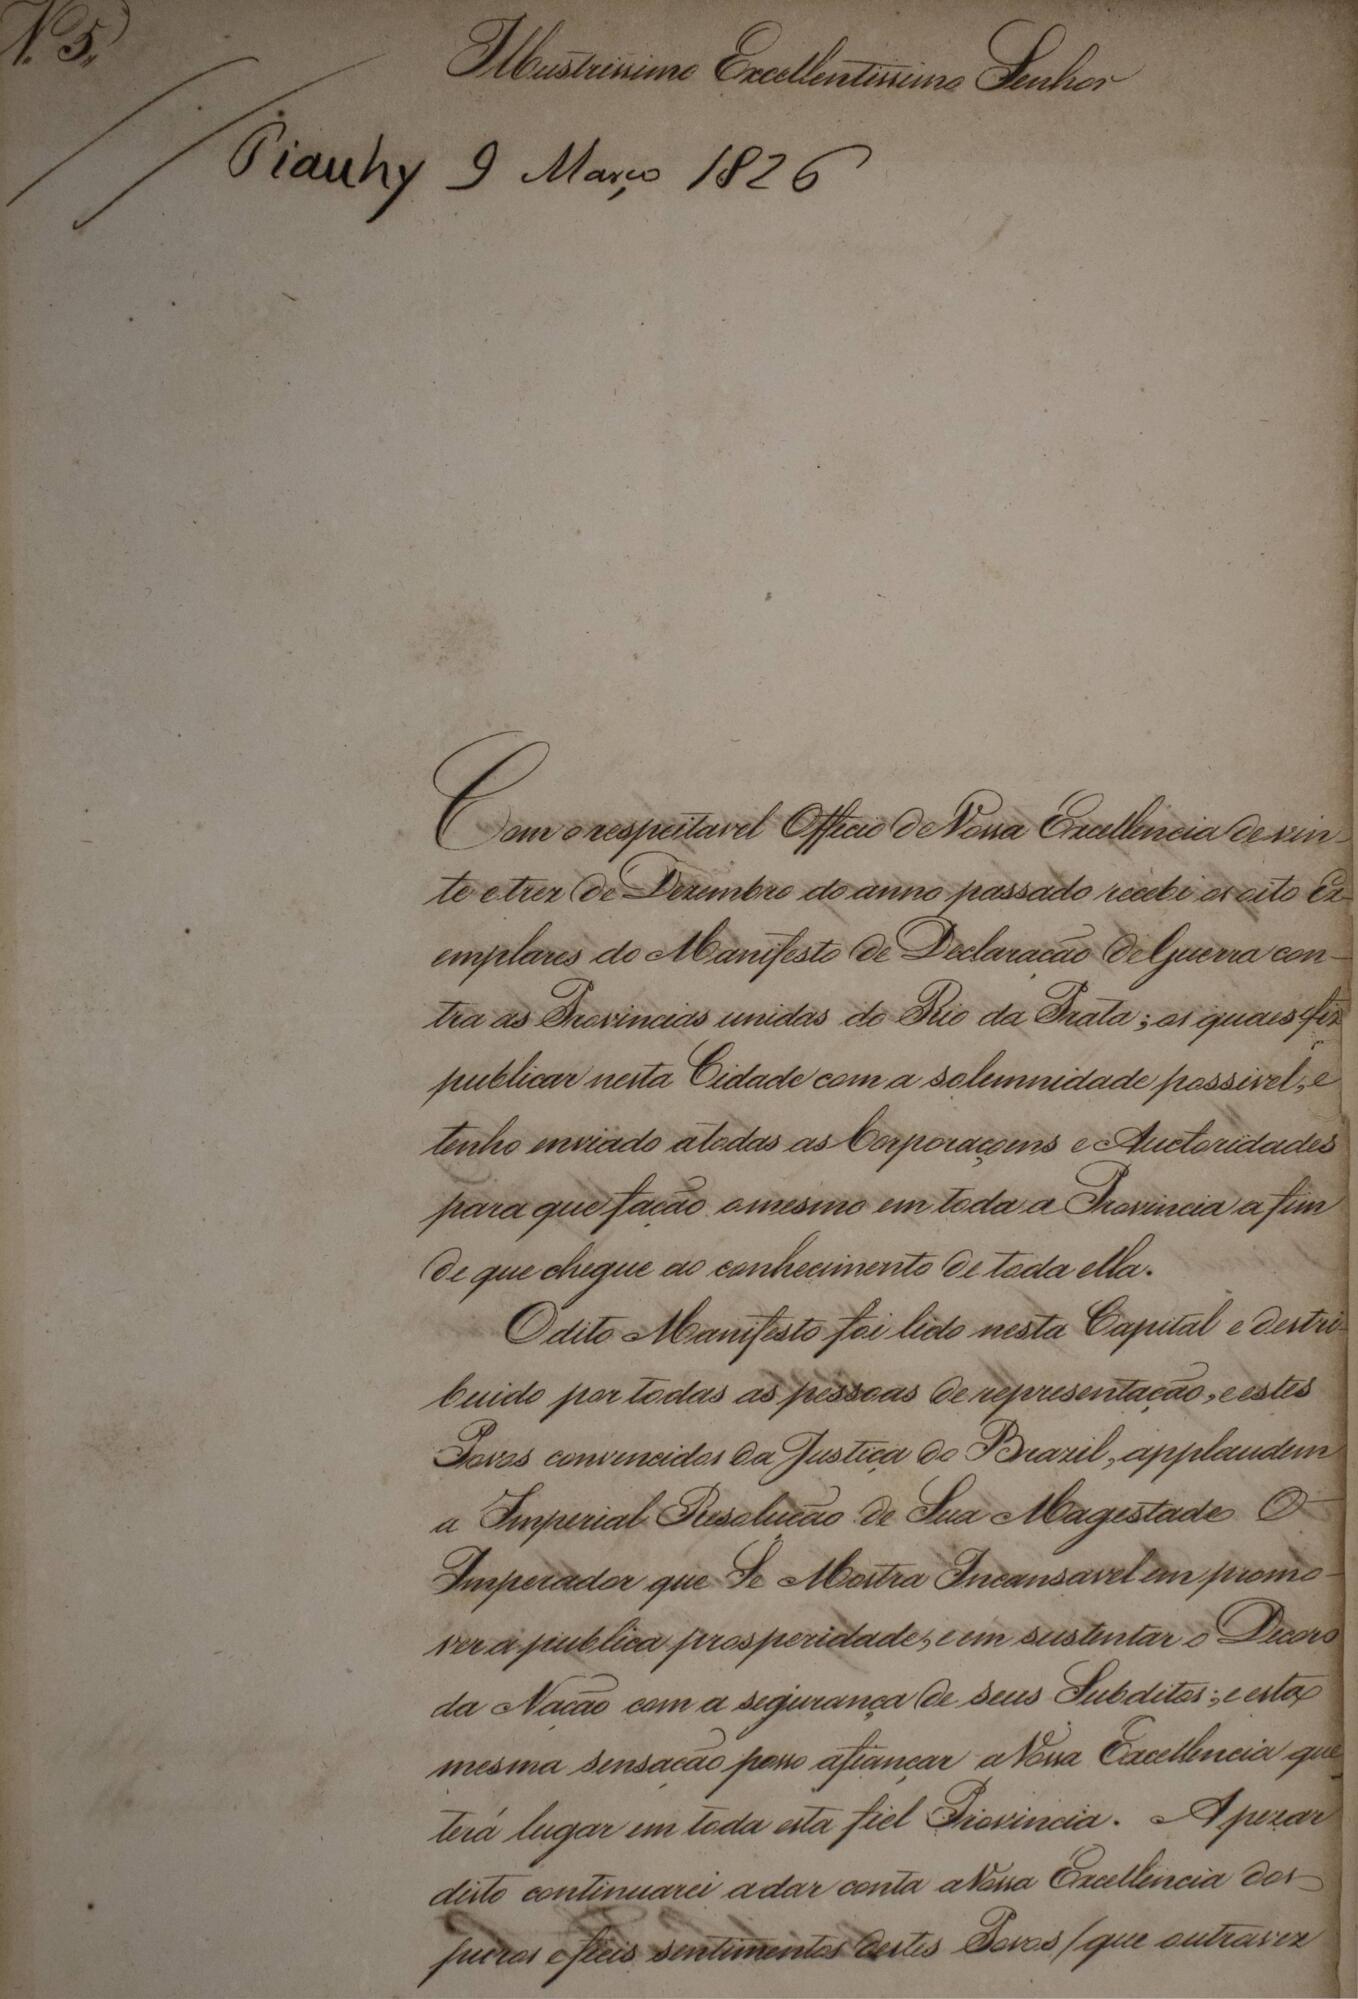 N. 5.
Illustrissimo Excellentissimo Senhor
Piauhy 9 Março 1826
Com o respeitavel Officio de Vossa Excellencia de vin-
te e trez de Dezembro do anno passado recebi os oito Ex-
emplares do Manifesto de Declaração de Guerra con-
tra as Provincias unidas do Rio da Prata; os quaes fiz
publicar nesta Cidade com a solemnidade possivel, e
tenho enviado a todas as Corporaçoens e Auctoridades
para que fação o mesmo em toda a Provincia a fim
de que chegue ao conhecimento de toda ella.
O dito Manifesto foi lido nesta Capital e destri-
buido por todas as pessoas de representação, e estes
Povos convencidos da Justiça do Brazil, applaudem
a Imperial Resolução de Sua Magestade O
Imperador que Se Mostra Incansavel em promo-
ver a publica prosperidade, e em sustentar o Decoro
da Nação com a segurança de seus Subditos; e esta
mesma sensação posso afiançar a Vossa Excellencia que
terá lugar em toda esta fiel Provincia. Apezar
disto continuarei a dar conta a Vossa Excellencia dos
puros e fieis sentimentos destes Povos / que outra vez